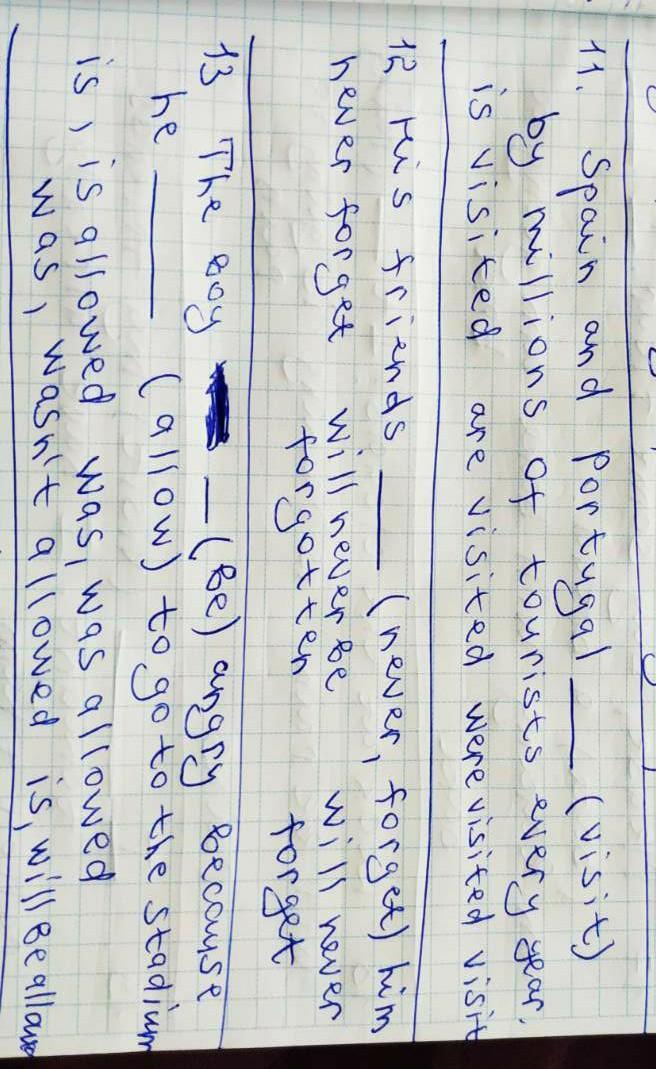 11. Spain and portugal ___ (visit)
by millions of tourists every year.
is visited are visited were visited visit
12 His friends ___ (never, forget) him
never forget will never be will never
forgotten forget
13 The boy ___ (be) angry because
he ___ (allow) to go to the stadium
is, is allowed was, was allowed
was, wasn't allowed is, will be allow